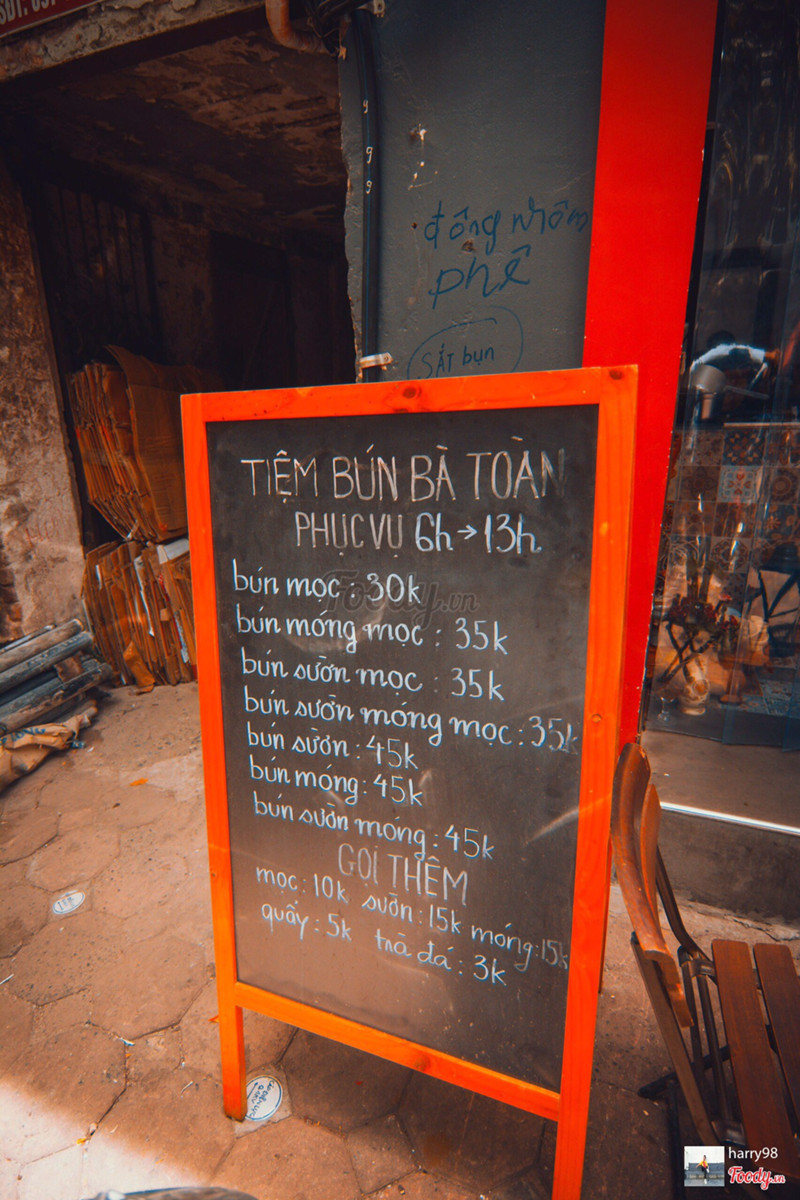 đồng nhôm
phê
SẮT bụn
TIỆM BÚN BÀ TOÀN
PHỤC VỤ 6h→13h
bún mọc : 30k
bún móng mọc : 35k
bún sườn mọc : 35k
bún sườn móng mọc : 35k
bún sườn : 45k
bún móng : 45k
bún sườn móng : 45k
GỌI THÊM
mọc : 10k sườn : 15k móng : 15k
quẩy : 5k trà đá : 3k
Foody.vn
harry98
Foody.vn